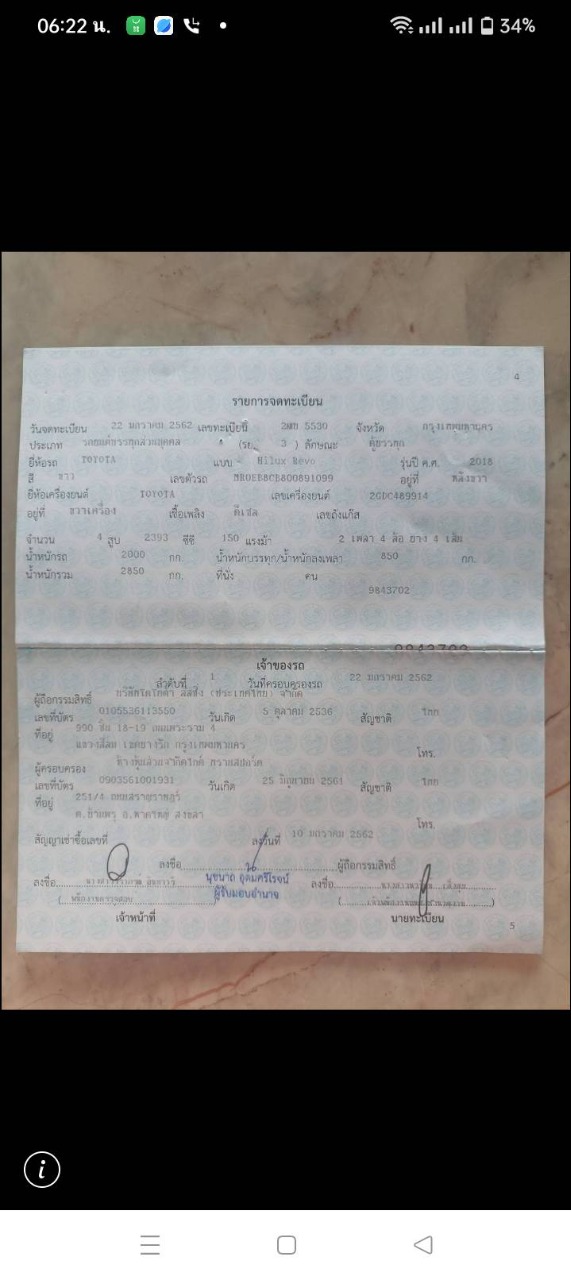 06:22 น.
34%
4
รายการจดทะเบียน
วันจดทะเบียน 22 มกราคม 2562 เลขทะเบียน 5530 จังหวัด กรุงเทพมหานคร
ประเภท รถยนต์บรรทุกส่วนบุคคล (รย. 3 ) ลักษณะ ตู้บรรทุก
ยี่ห้อรถ TOYOTA แบบ Hilux Revo รุ่นปี ค.ศ. 2018
สี ขาว เลขตัวรถ อยู่ที่
ยี่ห้อเครื่องยนต์ TOYOTA เลขเครื่องยนต์ 2GDC489914
อยู่ที่ ขวาเครื่อง เชื้อเพลิง ดีเซล เลขถังแก๊ส
จำนวน 4 สูบ 2393 ซีซี 150 แรงม้า 2 เพลา 4 ล้อ ยาง 4 เส้น
น้ำหนักรถ 2000 กก. น้ำหนักบรรทุก/น้ำหนักลงเพลา 850 กก.
น้ำหนักรวม 2850 กก. ที่นั่ง คน
9843702
9843702
เจ้าของรถ
ลำดับที่ 1 วันที่ครอบครองรถ 22 มกราคม 2562
ผู้ถือกรรมสิทธิ์ บริษัทโตโยต้า ลีสซิ่ง (ประเทศไทย) จำกัด
เลขที่บัตร 0105536113550 วันเกิด 5 ตุลาคม 2536 สัญชาติ ไทย
ที่อยู่ 990 ชั้น 18-19 ถนนพระราม 4
แขวงสีลม เขตบางรัก กรุงเทพมหานคร โทร.
ผู้ครอบครอง ห้างหุ้นส่วนจำกัด
เลขที่บัตร 0903561001931 วันเกิด 25 มิถุนายน 2561 สัญชาติ ไทย
ที่อยู่ 251/4
อ.หาดใหญ่ สงขลา โทร.
สัญญาเช่าซื้อเลขที่ ลงวันที่ 10 มกราคม 2562
ลงชื่อ ผู้ถือกรรมสิทธิ์
ลงชื่อ นุชนาถ อุดมศรีโรจน์ ลงชื่อ
ผู้รับมอบอำนาจ
เจ้าหน้าที่ นายทะเบียน
5